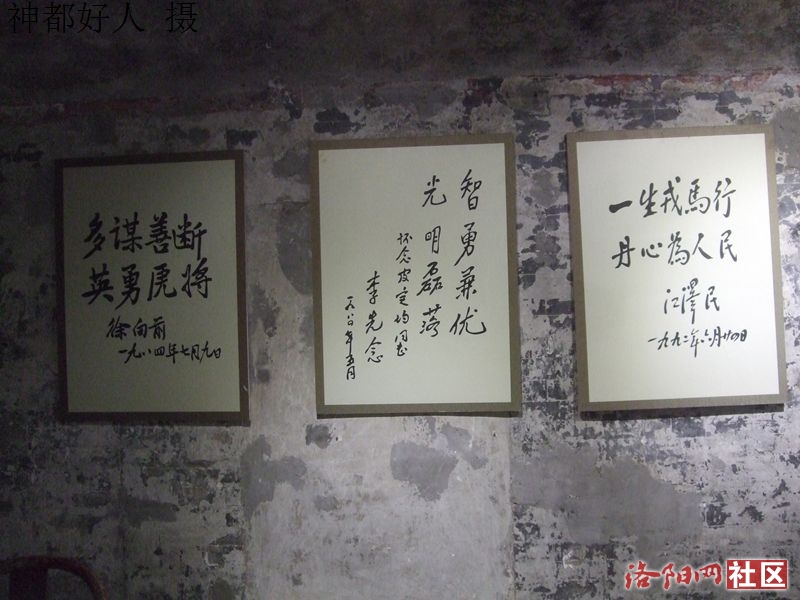 神都好人 摄
多谋善断
英勇虎将
徐向前
一九八四年七月九日
智勇兼优
光明磊落
怀念皮定均同志
李先念
一九八〇年五月
一生戎馬行
丹心為人民
江澤民
一九九二年六月廿四日
洛阳网社区